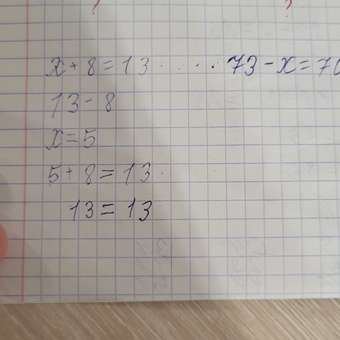 x + 8 = 13 . . . . . 73 - x = 70
13 - 8
x = 5
5 + 8 = 13
13 = 13